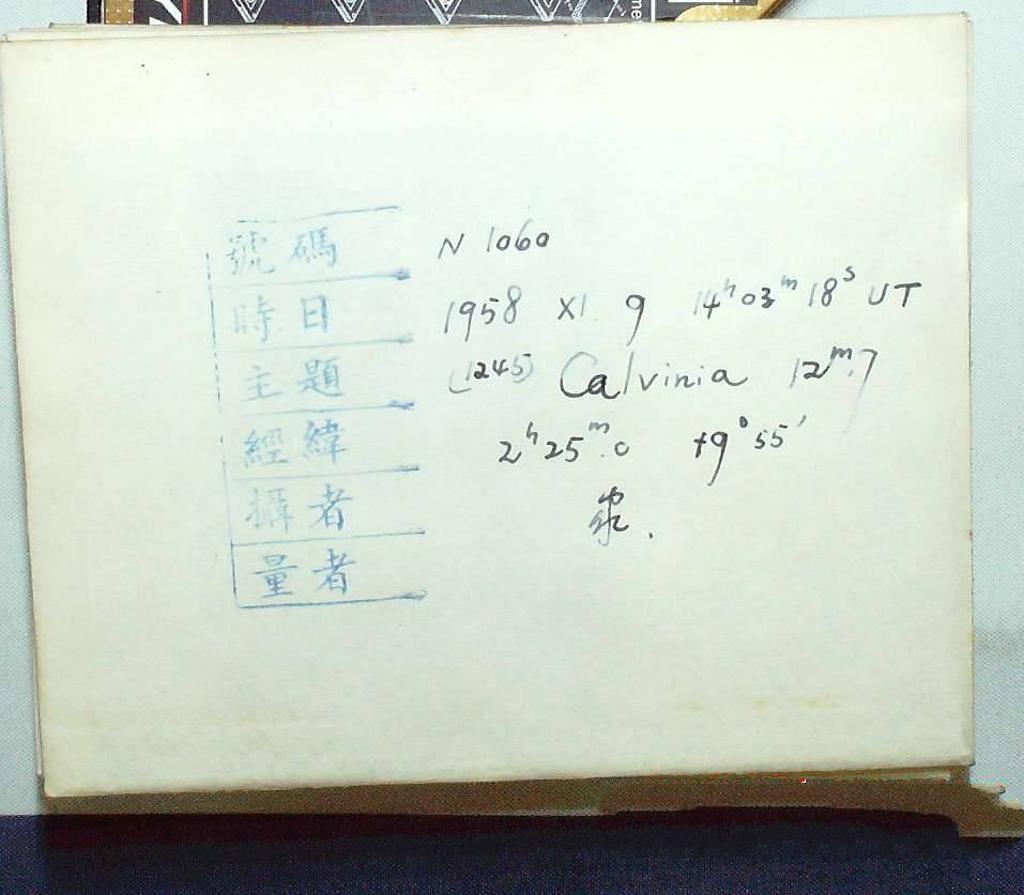 號碼 N 1060
時日 1958 XI. 9 14ʰ03ᵐ18ˢ UT
主題 (1245) Calvinia 12ᵐ.7
經緯 2ʰ25ᵐ.0 +9°55′
攝者
量者